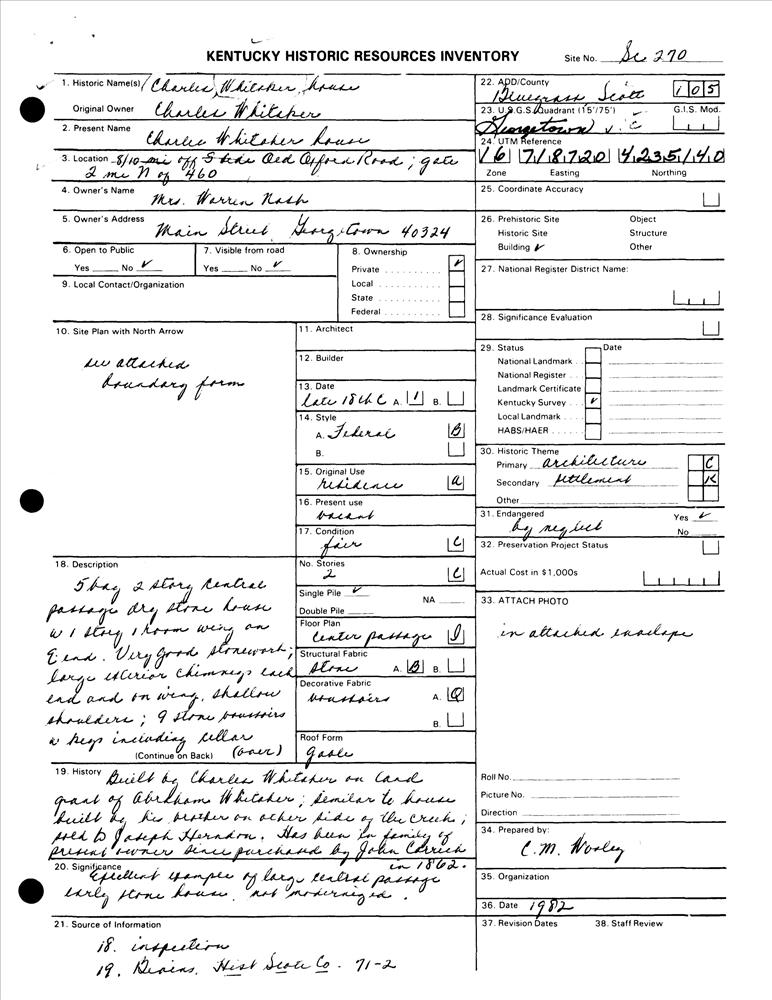 KENTUCKY HISTORIC RESOURCES INVENTORY
Site No. Sc 270
1. Historic Name(s) Charles Whitaker house
Original Owner Charles Whitaker
2. Present Name Charles Whitaker house
3. Location 8/10 mi off S side Old Oxford Road; gate
2 mi N of 460
4. Owner's Name Mrs. Warren Nash
5. Owner's Address Main Street Georgetown 40324
6. Open to Public
Yes No ✓
7. Visible from road
Yes No ✓
8. Ownership
Private ✓
Local
State
Federal
9. Local Contact/Organization
10. Site Plan with North Arrow
see attached
boundary form
11. Architect
12. Builder
13. Date
late 18th C A. 1 B.
14. Style
A. Federal B
B.
15. Original Use
residence a
16. Present use
vacant
17. Condition
fair C
18. Description
5 bay 2 story central
passage dry stone house
w 1 story 1 room wing on
E end. Very good stonework;
large exterior chimneys each
end and on wing, shallow
shoulders; 9 stone voussoirs
w keys including cellar
(Continue on Back) (over)
No. Stories
2 C
Single Pile ✓
NA
Double Pile
Floor Plan
center passage
Structural Fabric
stone A. B B.
Decorative Fabric
voussoirs A. Q
B.
Roof Form
gable
19. History Built by Charles Whitaker on land
grant of Abraham Whitaker; similar to house
built by his brother on other side of the creek;
sold to Joseph Herndon. Has been in family of
present owner since purchased by John
in 1862.
20. Significance
Excellent example of large central passage
early stone house, not modernized.
21. Source of Information
18. inspection
19. Hist Scott Co. 71-2
22. ADD/County
Bluegrass, Scott 105
23. U.S.G.S. Quadrant (15'/75') G.I.S. Mod.
Georgetown
24. UTM Reference
16 718720 4235140
Zone Easting Northing
25. Coordinate Accuracy
26. Prehistoric Site Object
Historic Site Structure
Building ✓ Other
27. National Register District Name:
28. Significance Evaluation
29. Status Date
National Landmark
National Register
Landmark Certificate
Kentucky Survey ✓
Local Landmark
HABS/HAER
30. Historic Theme
Primary architecture C
Secondary settlement K
Other
31. Endangered Yes ✓
by neglect No
32. Preservation Project Status
Actual Cost in $1,000s
33. ATTACH PHOTO
in attached envelope
Roll No.
Picture No.
Direction
34. Prepared by:
C.M. Wooley
35. Organization
36. Date 1982
37. Revision Dates 38. Staff Review